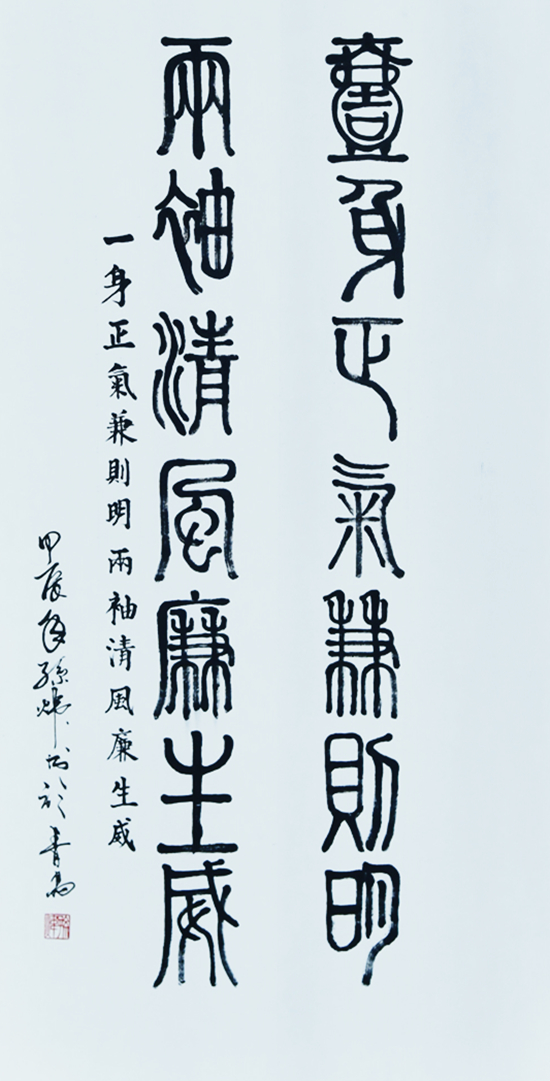 壹身正氣兼則明
兩袖清風廉生威
一身正氣兼則明兩袖清風廉生威
甲辰孫書於青島